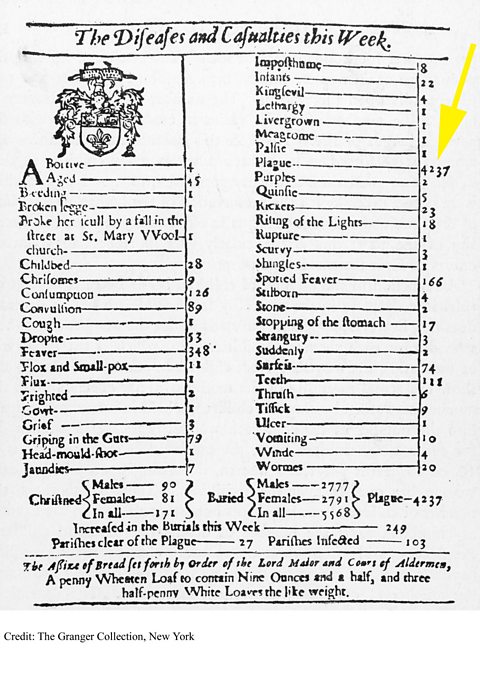 The Diſeaſes and Caſualties this Week.
ABortive 4
Aged 45
Bleeding 1
Broken legge 1
Broke her ſcull by a fall in the
ſtreet at St. Mary VVool-
church 1
Childbed 28
Chriſomes 9
Conſumption 126
Convulſion 89
Cough 1
Dropſie 53
Feaver 348
Flox and Small-pox 11
Flux 1
Frighted 2
Gowt 1
Grief 3
Griping in the Guts 79
Head-mould-ſhot 1
Jaundies 7
Impoſthume 8
Infants 22
Kingſevil 4
Lethargy 1
Livergrown 1
Meagrome 1
Palſie 1
Plague 4237
Purples 2
Quinſie 5
Rickets 23
Riſing of the Lights 18
Rupture 1
Scurvy 3
Shingles 1
Spotted Feaver 166
Stilborn 4
Stone 2
Stopping of the ſtomach 17
Strangury 3
Suddenly 2
Surfeit 74
Teeth 111
Thruſh 6
Tiſſick 9
Ulcer 1
Vomiting 10
Winde 4
Wormes 20
Chriſtned
Males 90
Females 81
In all 171
Buried
Males 2777
Females 2791
In all 5568
Plague 4237
Increaſed in the Burials this Week 249
Pariſhes clear of the Plague 27 Pariſhes Infected 103
The Aſſize of Bread ſet forth by Order of the Lord Maior and Court of Aldermen,
A penny Wheaten Loaf to contain Nine Ounces and a half, and three
half-penny White Loaves the like weight.
Credit: The Granger Collection, New York